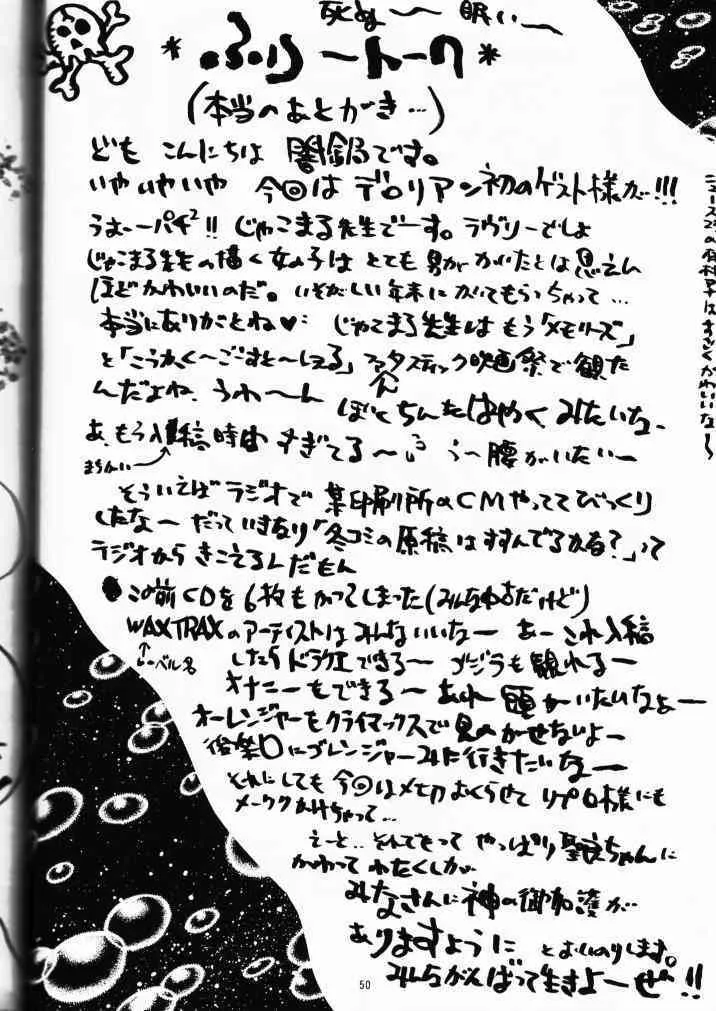 死ぬ〜 眠い〜
*ふりートーク*
(本当のあとがき…)
ども こんにちは 闇鍋です。
いやいやいや 今回は デロリアン初のゲスト様が…!!!
うおーーパチ²!! じゃこまる先生でーす。ラヴリーでしょ
じゃこまる先生の描く女の子は とても 男が かいたとは思えん
ほどかわいいのだ。いそがしい年末に かいてもらっちゃって…
本当にありがとね♥ じゃこまる先生は もう「メモリーズ」
と「こうかく〜ごーすと〜しぇる」ファンタスティック映画祭で観た
んだよね、うわ〜ん ぼくちんもはやく みたいなー
あ、もう入稿時間 すぎてる〜 う〜腰がいたいー
そういえば ラジオで 某印刷所のCMやっててびっくり
したなー だっていきなり「冬コミの原稿はすすんでるかな?」って
ラジオから きこえるんだもん
この前CDを6枚もかってしまった(みんな中古だけど)
WAXTRAXのアーティストは みんないいなー あーこれ入稿
↑レーベル名
したらドラクエできる〜 ゴジラも観れるー
オナニーもできる〜 あれ 頭がいたいなぁー
オーレンジャーもクライマックスで見のがせないよー
後楽口にゴレンジャーみに行きたいなー
それにしても 今回はメチャおくらせて リプロ様にも
メーワクかけちゃって…
えーと… そんでもって やっぱり 聖良ちゃんに
かわって わたくしが
みなさんに 神の御加護が…
ありますように とおいのりします。
みんながんばって生きよーぜ!!
50